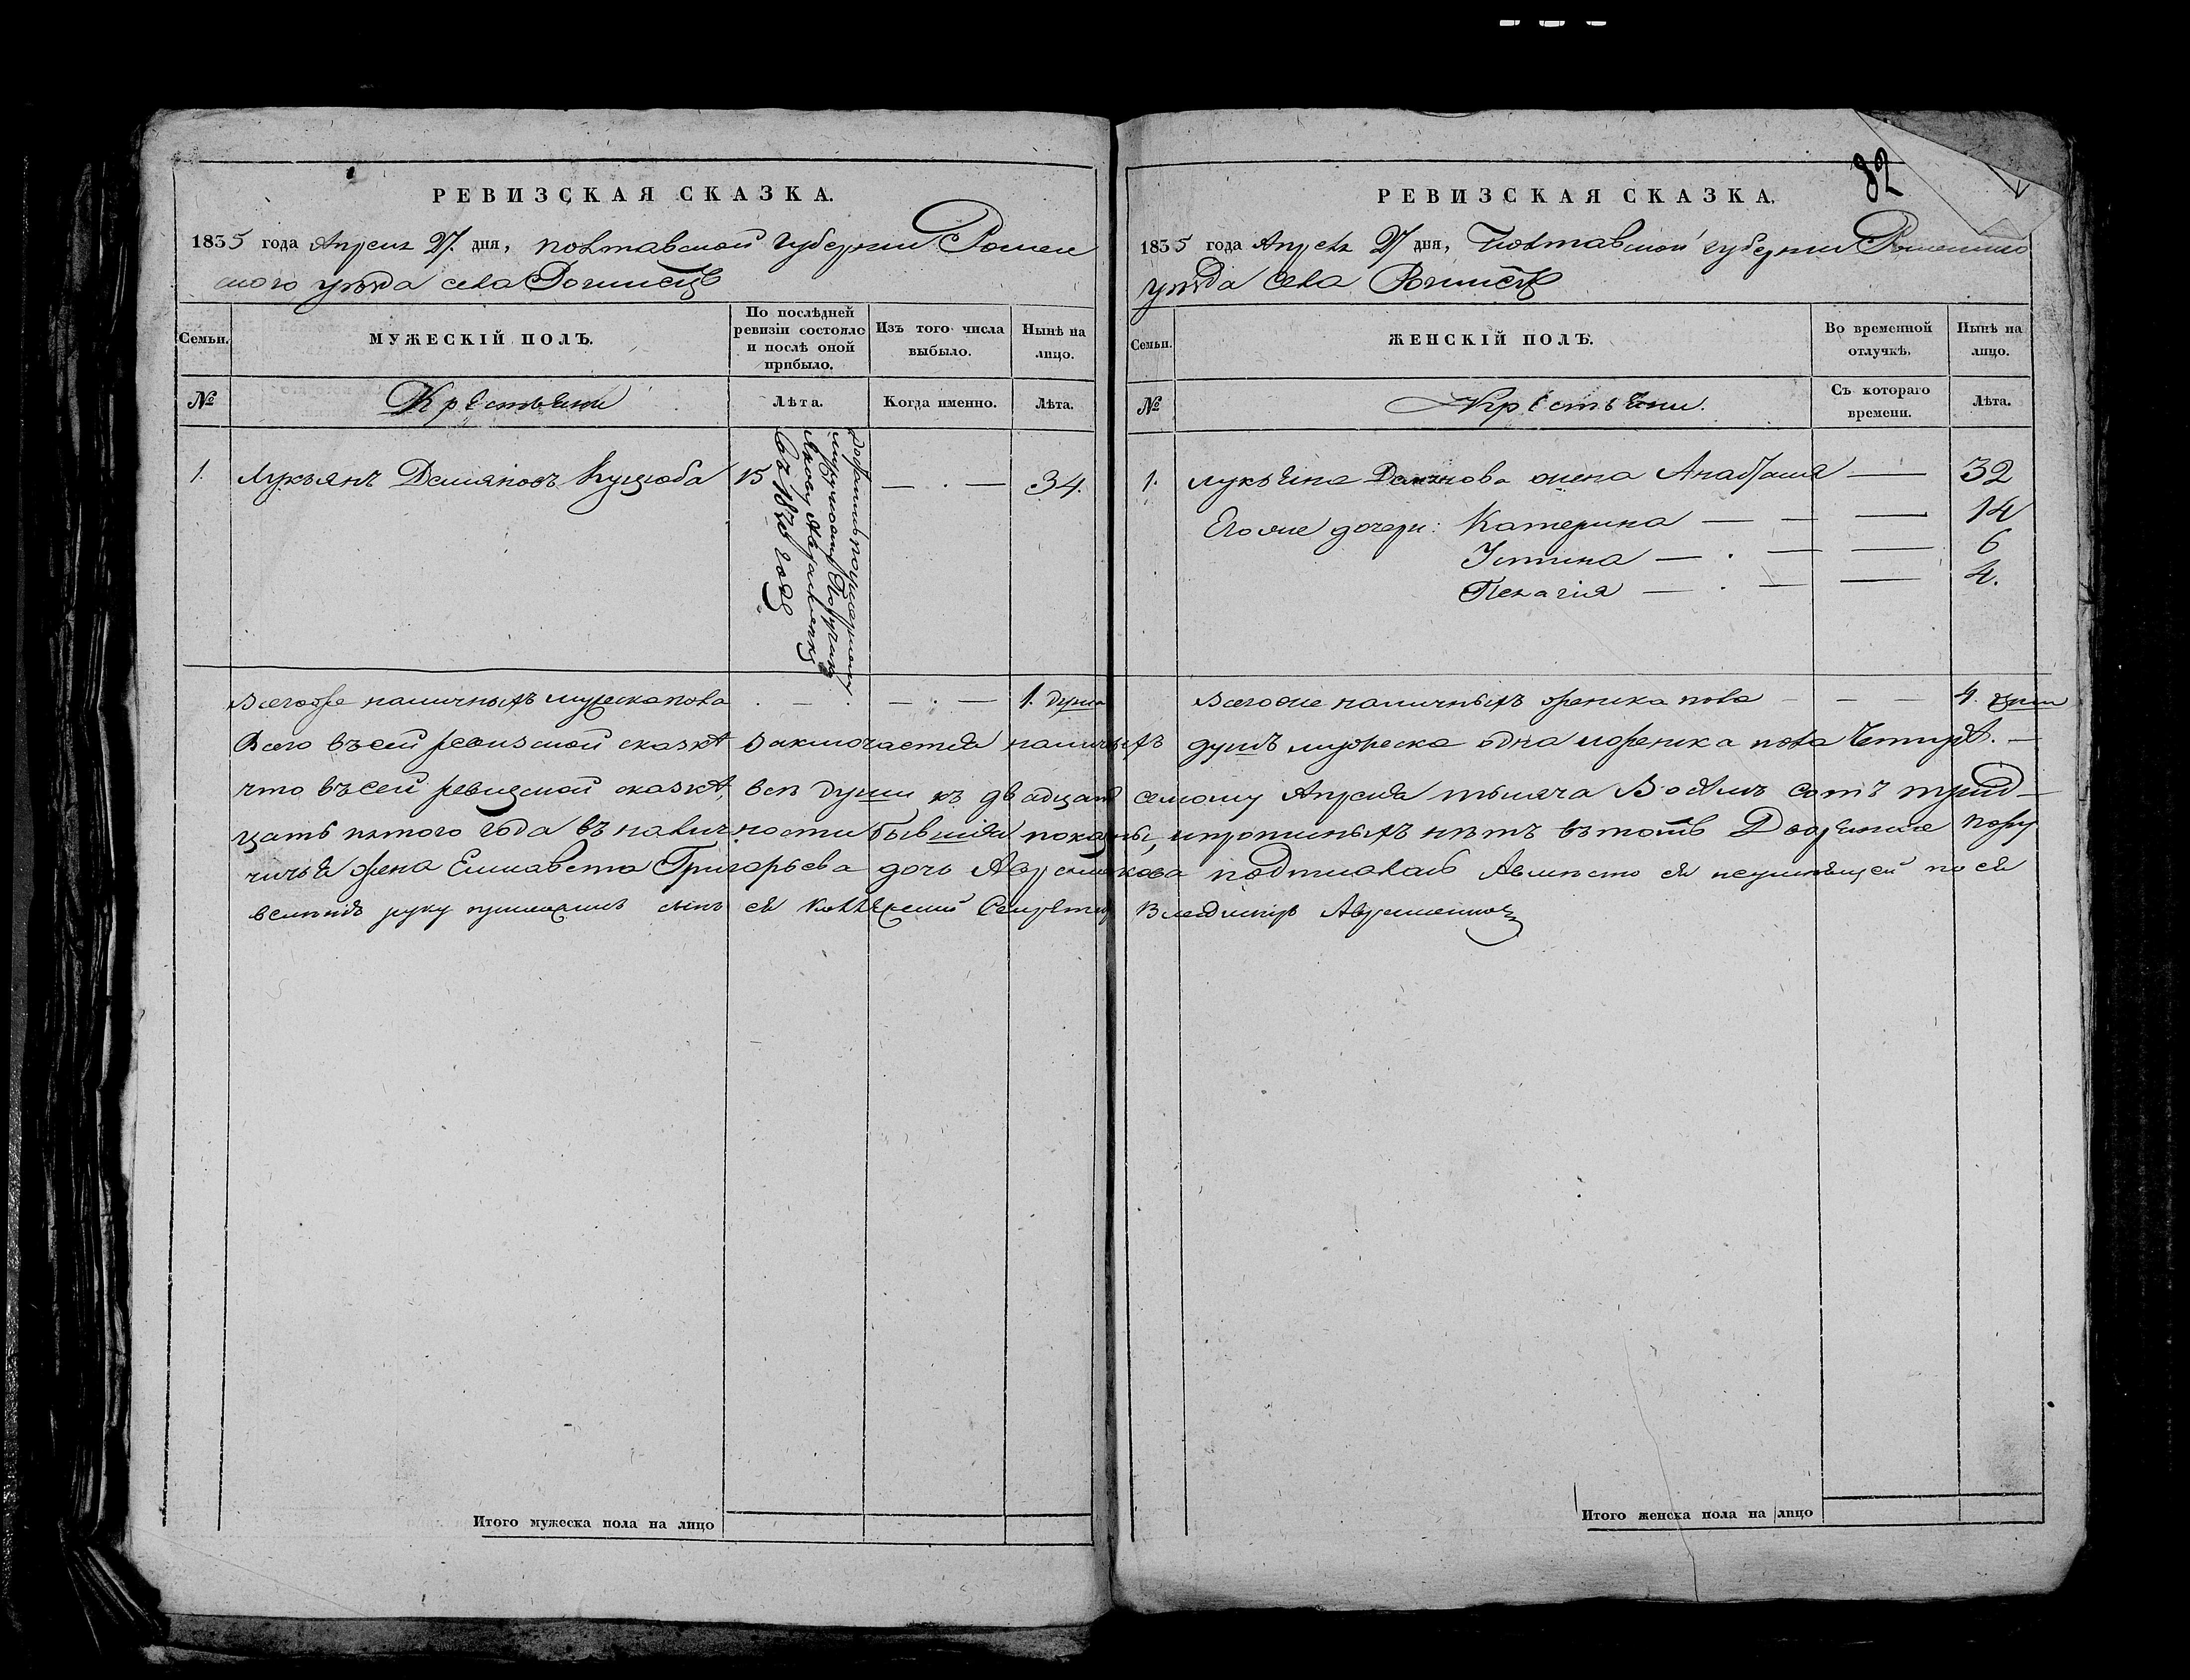 РЕВИЗСКАЯ СКАЗКА.
1835 года Апреля 27. дня, Полтавской Губернии Ромен
ского уезда села
Семьи.
МУЖЕСКІЙ ПОЛЪ.
По послѣдней
ревизіи состояло
и послѣ оной
прибыло.
Изъ того числа
выбыло.
Нынѣ на
лицо.
№
Крестьяни
Лѣта.
Когда именно.
Лѣта.
1. Лукъянъ Демяновъ 15 34.
году
Всегоже наличныхъ мужеска пола 1. душа
82
РЕВИЗСКАЯ СКАЗКА.
1835 года Апреля 27 дня, Полтавской губернии Роменского
уезда села
Семьи.
ЖЕНСКІЙ ПОЛЪ.
Во временной
отлучкѣ.
Нынѣ на
лицо.
№
Крестьяни.
Съ котораго
времени.
Лѣта.
1. Лукъяна жена 32
Его же дочери: Катерина 14
Устина 6
Пелагія 4.
Всегоже наличныхъ женска пола 4. души
Всего въ сей ревизской сказке заключается наличныхъ душъ мужеска одна и женска пола четыре.
что въ сей ревизской сказке, все души къ двадцать семому Апреля тысяча восемъ сотъ трид
цать пятого года въ наличности бывшия показаны, и нетъ въ томъ пору
чичья жена Елисавета Григорьева дочь подписалась а вместо ея неумеющей по ея
веленію руку приложилъ сынъ ея Секретарь Владимиръ
Итого мужеска пола на лицо
Итого женска пола на лицо